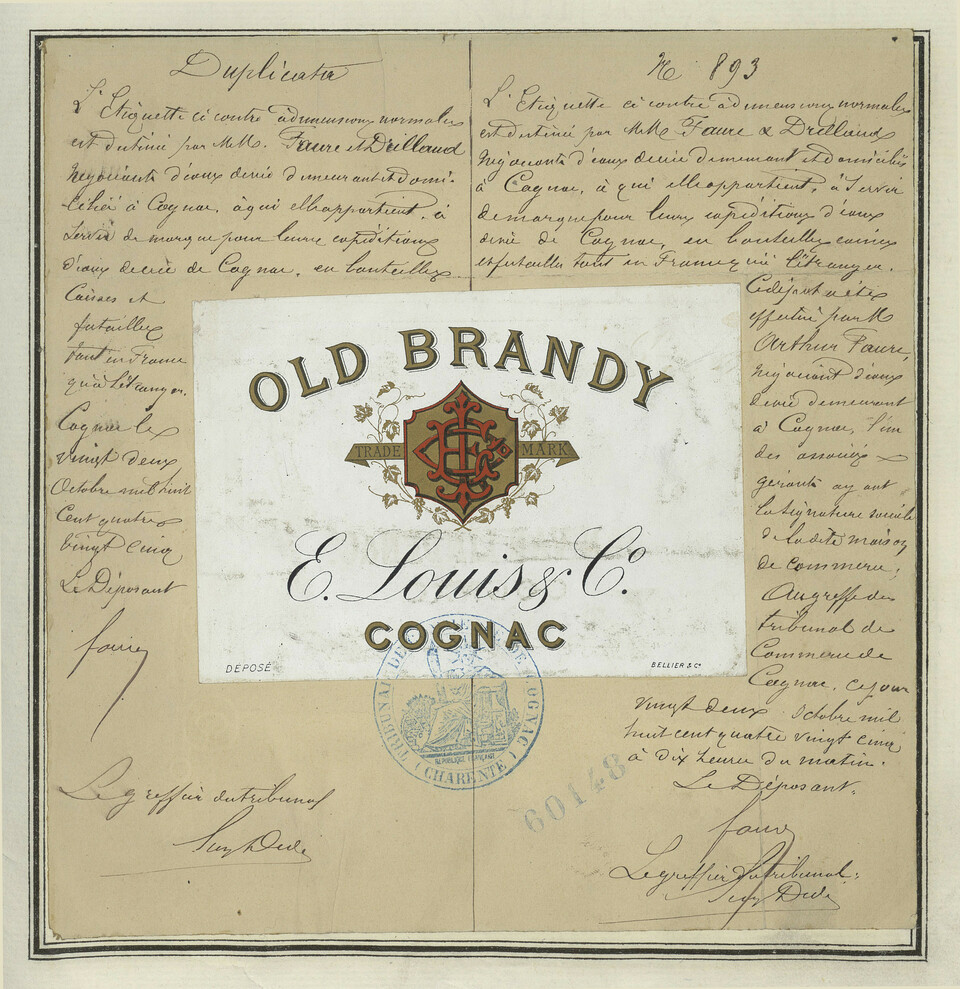 Duplicata
L'Etiquette ci contre à dimensions normales
est destinée par M.M. Faure et Drilland
Négociants d'eaux de vie demeurant et domi-
ciliés à Cognac, à qui elle appartient, à
servir de marque pour leurs expéditions
d'eaux de vie de Cognac, en bouteilles
Caisses et
futailles
tant en France
qu'à l'étranger.
Cognac le
vingt deux
Octobre mil huit
Cent quatre
vingt cinq
Le Déposant
Faure
Le greffier du tribunal
N 893
L'Etiquette ci contre à dimensions normales
est destinée par M.M. Faure & Drilland
Négociants d'eaux de vie demeurant et domiciliés
à Cognac, à qui elle appartient, à servir
de marque pour leurs expéditions d'eaux
de vie de Cognac, en bouteilles caisses
et futailles tant en France qu'à l'étranger.
Ce dépôt a été
effectué par M
Arthur Faure,
Négociant d'eaux
de vie demeurant
à Cognac, l'un
des associés
gérants ayant
la signature sociale
de la dite maison
de commerce,
Au greffe du
tribunal de
Commerce de
Cognac, ce jour
vingt deux Octobre mil
huit cent quatre vingt cinq
à dix heures du matin.
Le Déposant.
Faure
Le greffier du tribunal.
OLD BRANDY
TRADE MARK
E. Louis & Co.
COGNAC
DÉPOSÉ
BELLIER & Co
TRIBUNAL DE COGNAC
RÉPUBLIQUE FRANÇAISE
(CHARENTE)
60148